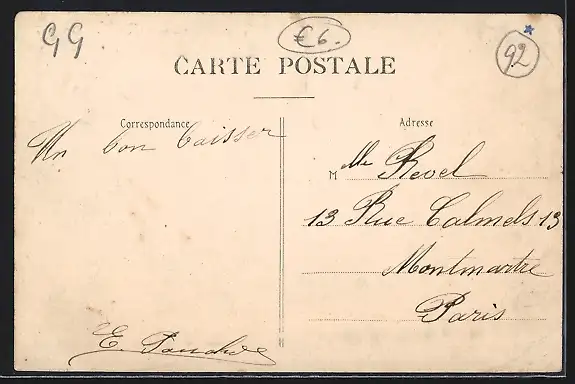 GG
€6.
92
CARTE POSTALE
Correspondance
Un bon baisser
E.
Adresse
M lle Revel
13 Rue Calmels 13
Montmartre
Paris